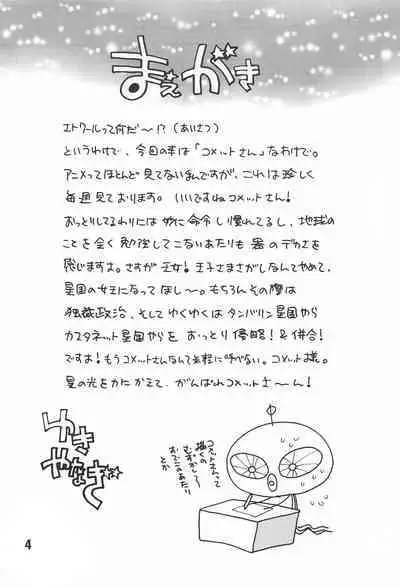 まえがき
エトワールって何だ〜!?(あいさつ)
というわけで、今回の本は「コメットさん」なわけで。
アニメってほとんど見てないまんですが、これは珍しく
毎週見ております。いいですねコメットさん!
おっとりしてるわりには妙に命令し慣れてるし、地球の
ことを全く勉強してこないあたりも器のデカさを
感じますよ。さすが王女!王子さまさがしなんてやめて、
星国の女王になってほし〜。もちろんその際は
独裁政治、そしてゆくゆくはタンバリン星国やら
カスタネット星国やらをおっとり侵略!&併合!
ですよ!もうコメットさんなんて気軽に呼べない。コメット様。
星の光をかにかえて、がんばれコメットさ〜ん!
コメットさんって
描くの
むずかし〜
おでこのあたり
とか
ゆき
やなぎ
4